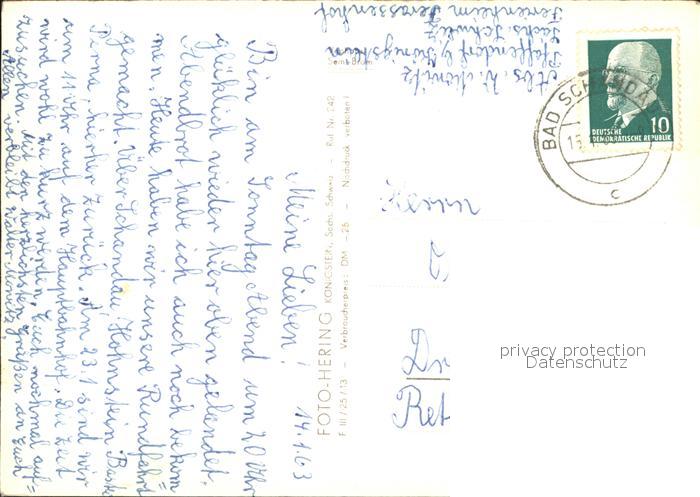 14.1.63
Meine Lieben!
Bin am Sonntag Abend um 20 Uhr
glücklich wieder hier oben gelandet.
Abendbrot habe ich auch noch bekom=
men. Heute haben wir unsere Rundfahrt
gemacht. Über Schandau, Hohnstein, Bastei
Pirna, hierher zurück. Am 23.1 sind wir
um 11 Uhr auf dem Hauptbahnhof. Die Zeit
wird wohl zu kurz werden, Euch nochmal auf=
zusuchen. Mit den herzlichsten Grüßen an Euch
Allen verbleibt Walter Moritz.
FOTO-HERING KÖNIGSTEIN, Sächs. Schweiz – Ruf Nr. 242
F III/25/13 – Verbraucherpreis: DM –25 – Nachdruck verboten!
Abs. W. Moritz
Pfaffendorf b/ Königstein
Sächs. Schweiz
Ferienheim Terassenhof
DEUTSCHE
DEMOKRATISCHE REPUBLIK
10
BAD SCHANDAU
c
Dr
Ret
privacy protection
Datenschutz